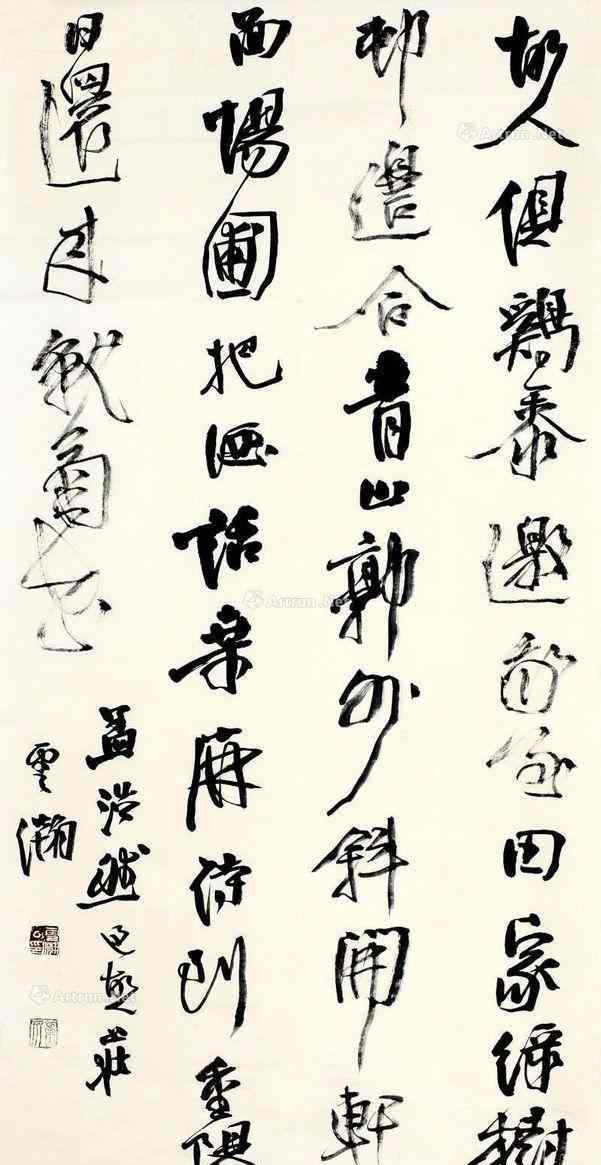 故人俱鷄黍邀我至田家綠樹
邨邊合青山郭外斜開軒
面場圃把酒話桑麻待到重陽
日還來就菊花
孟浩然過故人莊
雲瀚
Artron.Net
Artron.Net
Artron.Net